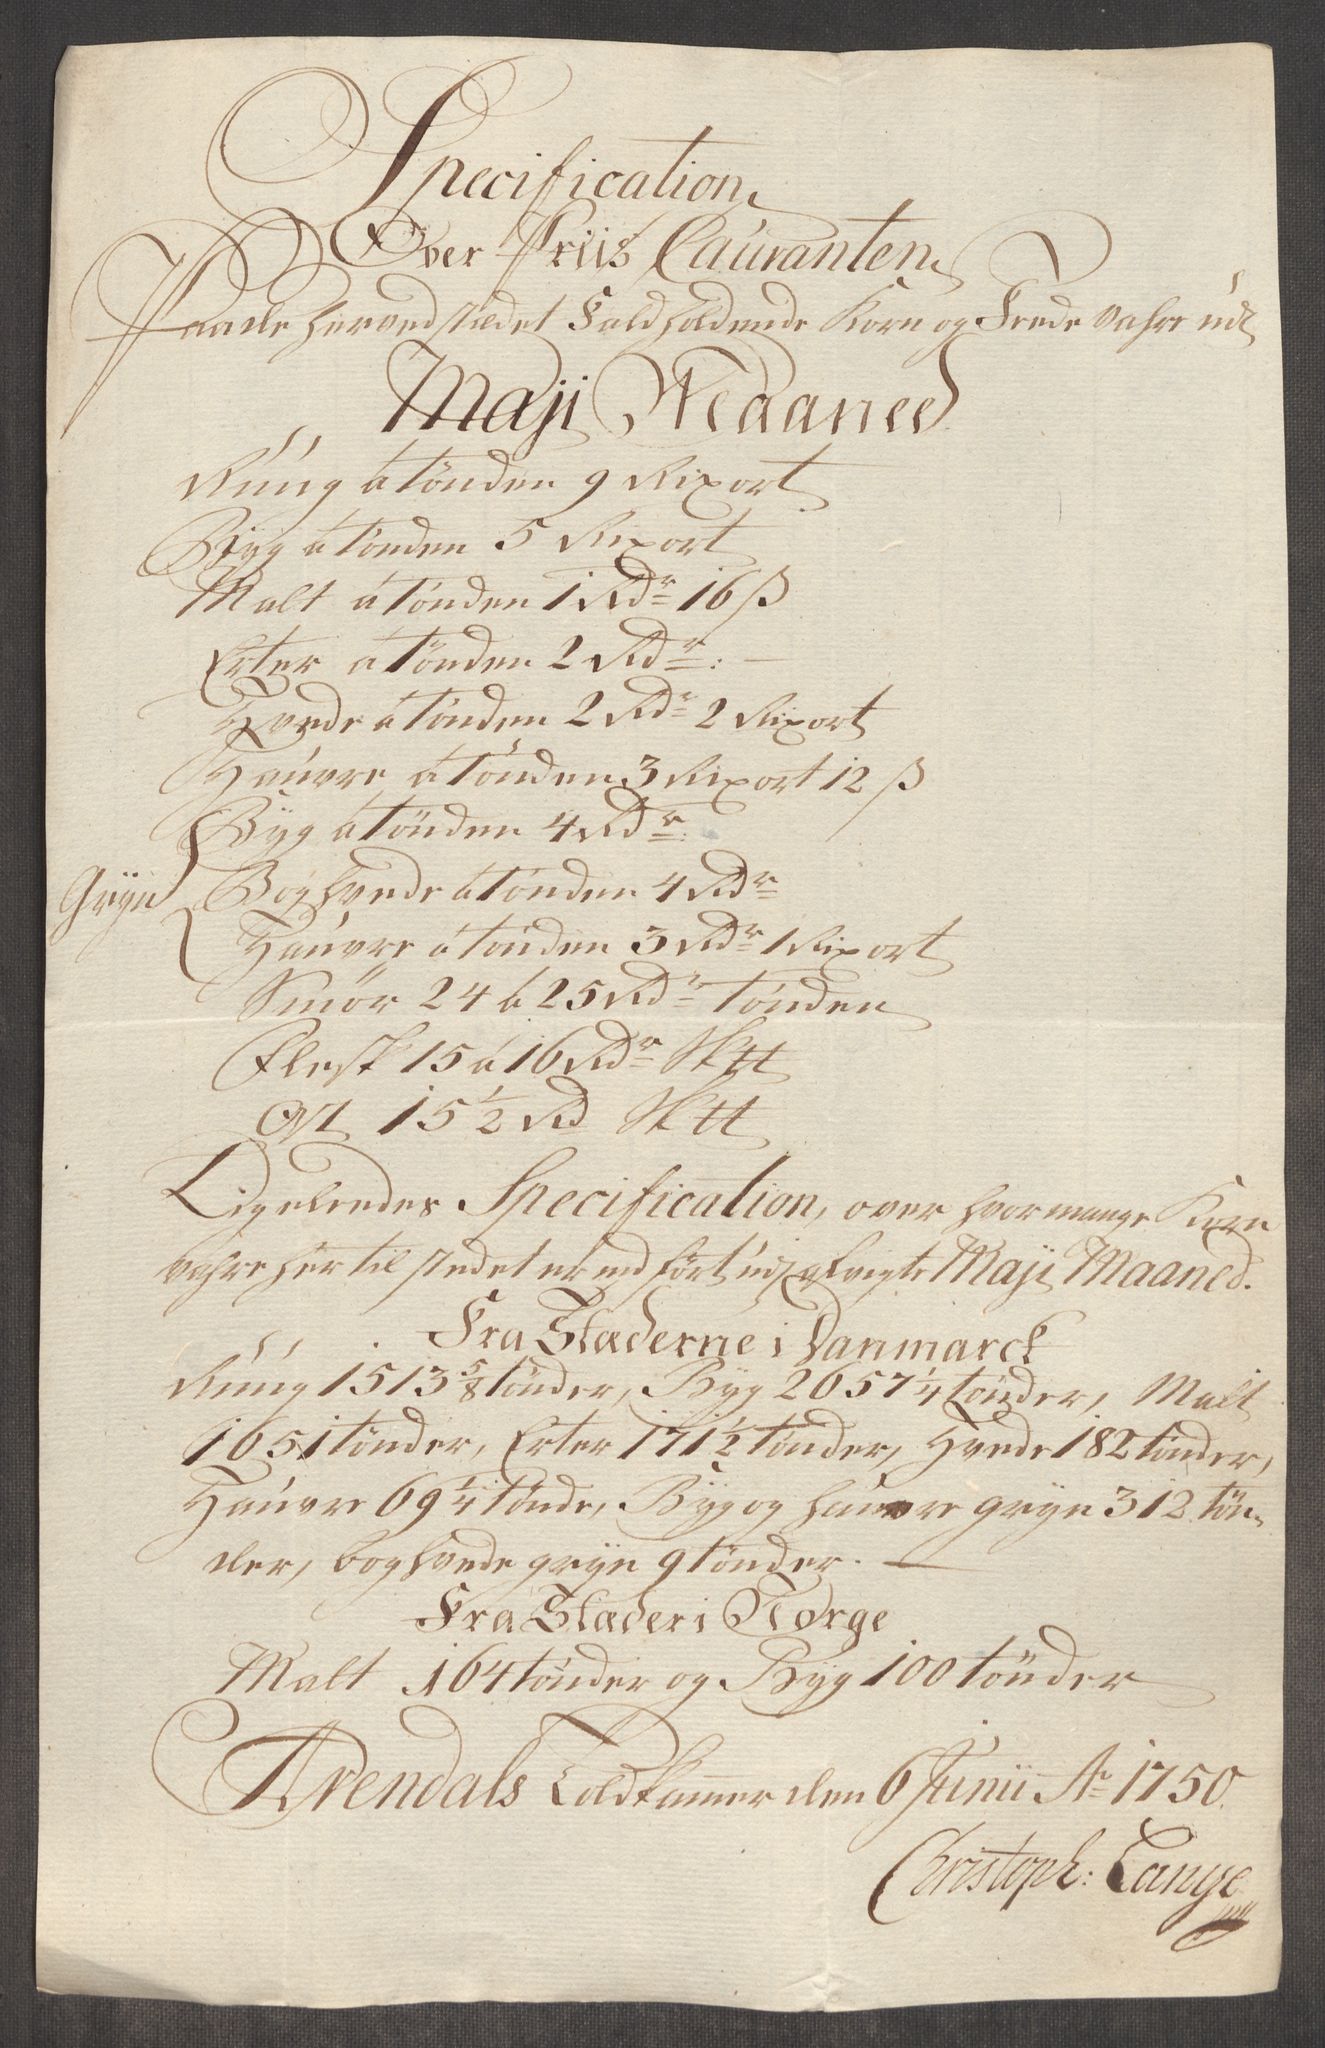 Specification
Over Priis Couranten
Paa de her ved stædet Faldholdende Korn og Fede vahre udi
Maji Maaned
Rúug á tönden 9 Rixort
Byg á tönden 5 Rixort
Malt á tönden 1 Rdr 16 β
Erter á tönden 2 Rdr: —
Hvede á tönden 2 Rdr 2 Rixort
Haúvre á tönden 3 Rixort 12 β
Byg á tönden 4 Rdr
Gryn Boghvede á tönden 4 Rdr
Haúvre á tönden 3 Rdr 1 Rixort
Smör 24 á 25 Rdr tönden
Flesk 15 á 16 Rdr Sk℔
Ost 15 1/2 Rd Sk℔
Ligeleedes Specification, over hvor mange Korn
vahre her til stedet er indfört udj Maji Maaned.
Fra Stæderne i Danmarck
Rúug 1513 5/8 tönder, Byg 2657 1/4 tönder, Malt
1651 tönder, Erter 171 1/2 tönder, Hvede 182 tönder,
Haúvre 69 1/4 tönde, Byg og haúvre gryn 312 tön-
der, boghvede gryn 9 tönder. —
Fra Stæder i Norge
Malt 164 tönder og Byg 100 tönder
Arendals Toldkammer den 6 Junii Ao 1750.
Christoph: Lange